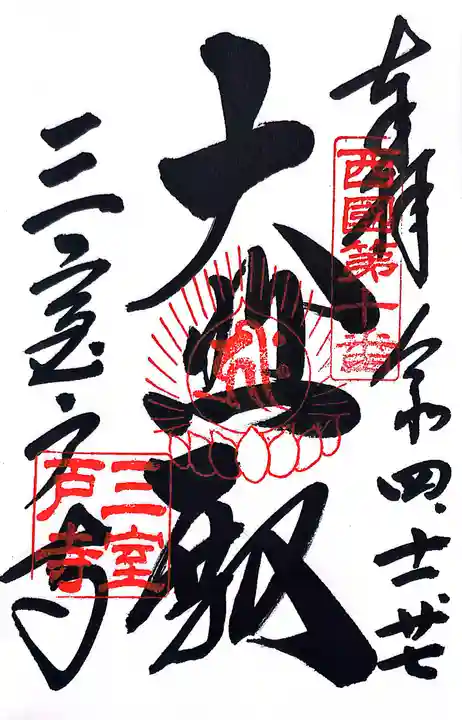 奉拝 令和四、十一 廿七
西國第十番
大悲殿
三室戸寺
三室戸寺